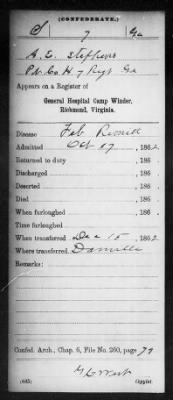 (CONFEDERATE.)
S 7 Ga
A. S. Stephens
Pvt. Co. H, 7 Regt Ga
Appears on a Register of
General Hospital Camp Winder,
Richmond, Virginia.
Disease Feb Remitt
Admitted Oct 17, 1862
Returned to duty , 186
Discharged , 186
Deserted , 186
Died , 186
When furloughed , 186
Time furloughed
When transferred Dec 15, 1862
Where transferred Danville
Remarks:
Confed. Arch., Chap. 6, File No. 260, page 77
(635) Copyist.